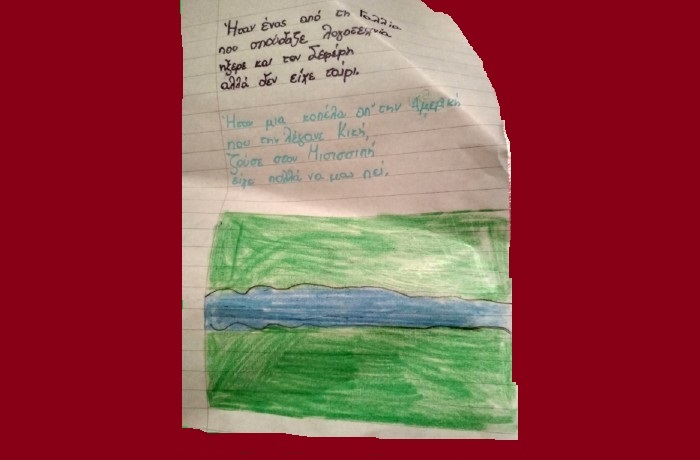 Ήταν ένας από τη Γαλλία
που σπούδαζε λογοτεχνία
ήξερε και τον Σεφέρη
αλλά δεν είχε ταίρι.
Ήταν μια κοπέλα απ' την Αμερική
που την λέγανε Κική,
ζούσε στον Μισισσιπή
είχε πολλά να μας πει.